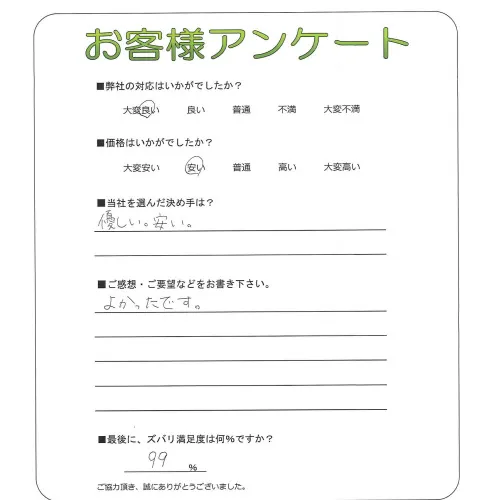 お客様アンケート
■弊社の対応はいかがでしたか？
大変良い 良い 普通 不満 大変不満
■価格はいかがでしたか？
大変安い 安い 普通 高い 大変高い
■当社を選んだ決め手は？
優しい。安い。
■ご感想・ご要望などをお書き下さい。
よかったです。
■最後に、ズバリ満足度は何%ですか？
99 %
ご協力頂き、誠にありがとうございました。